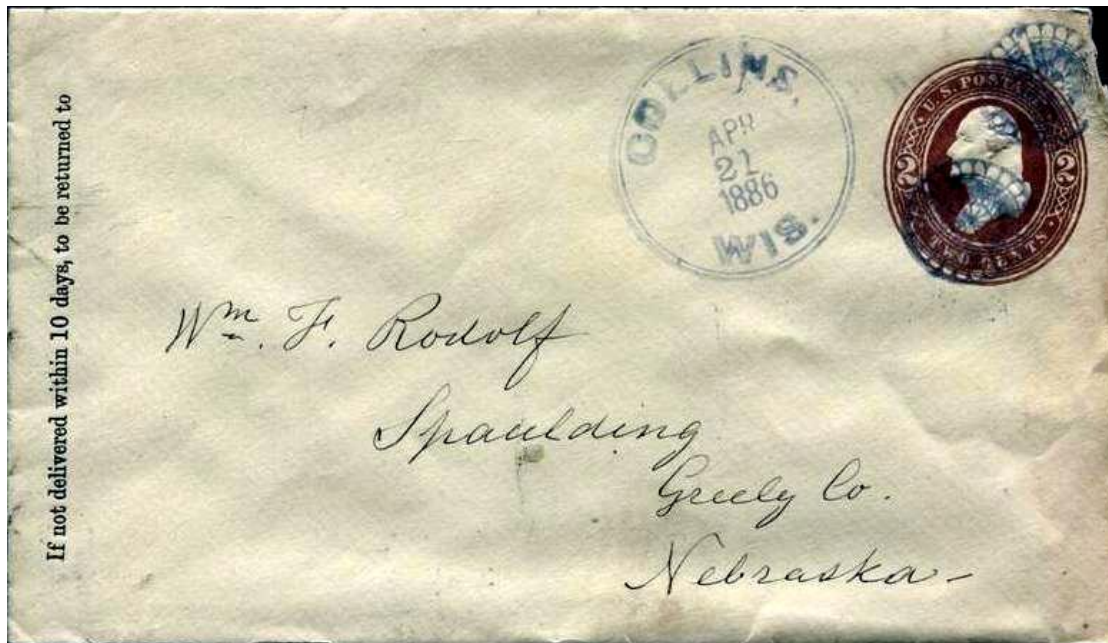 If not delivered within 10 days, to be returned to
COLLINS,
APR
21
1886
WIS.
U.S. POSTAGE
2 2
TWO CENTS.
Wm. F. Rodolf
Spaulding
Greely Co.
Nebraska-